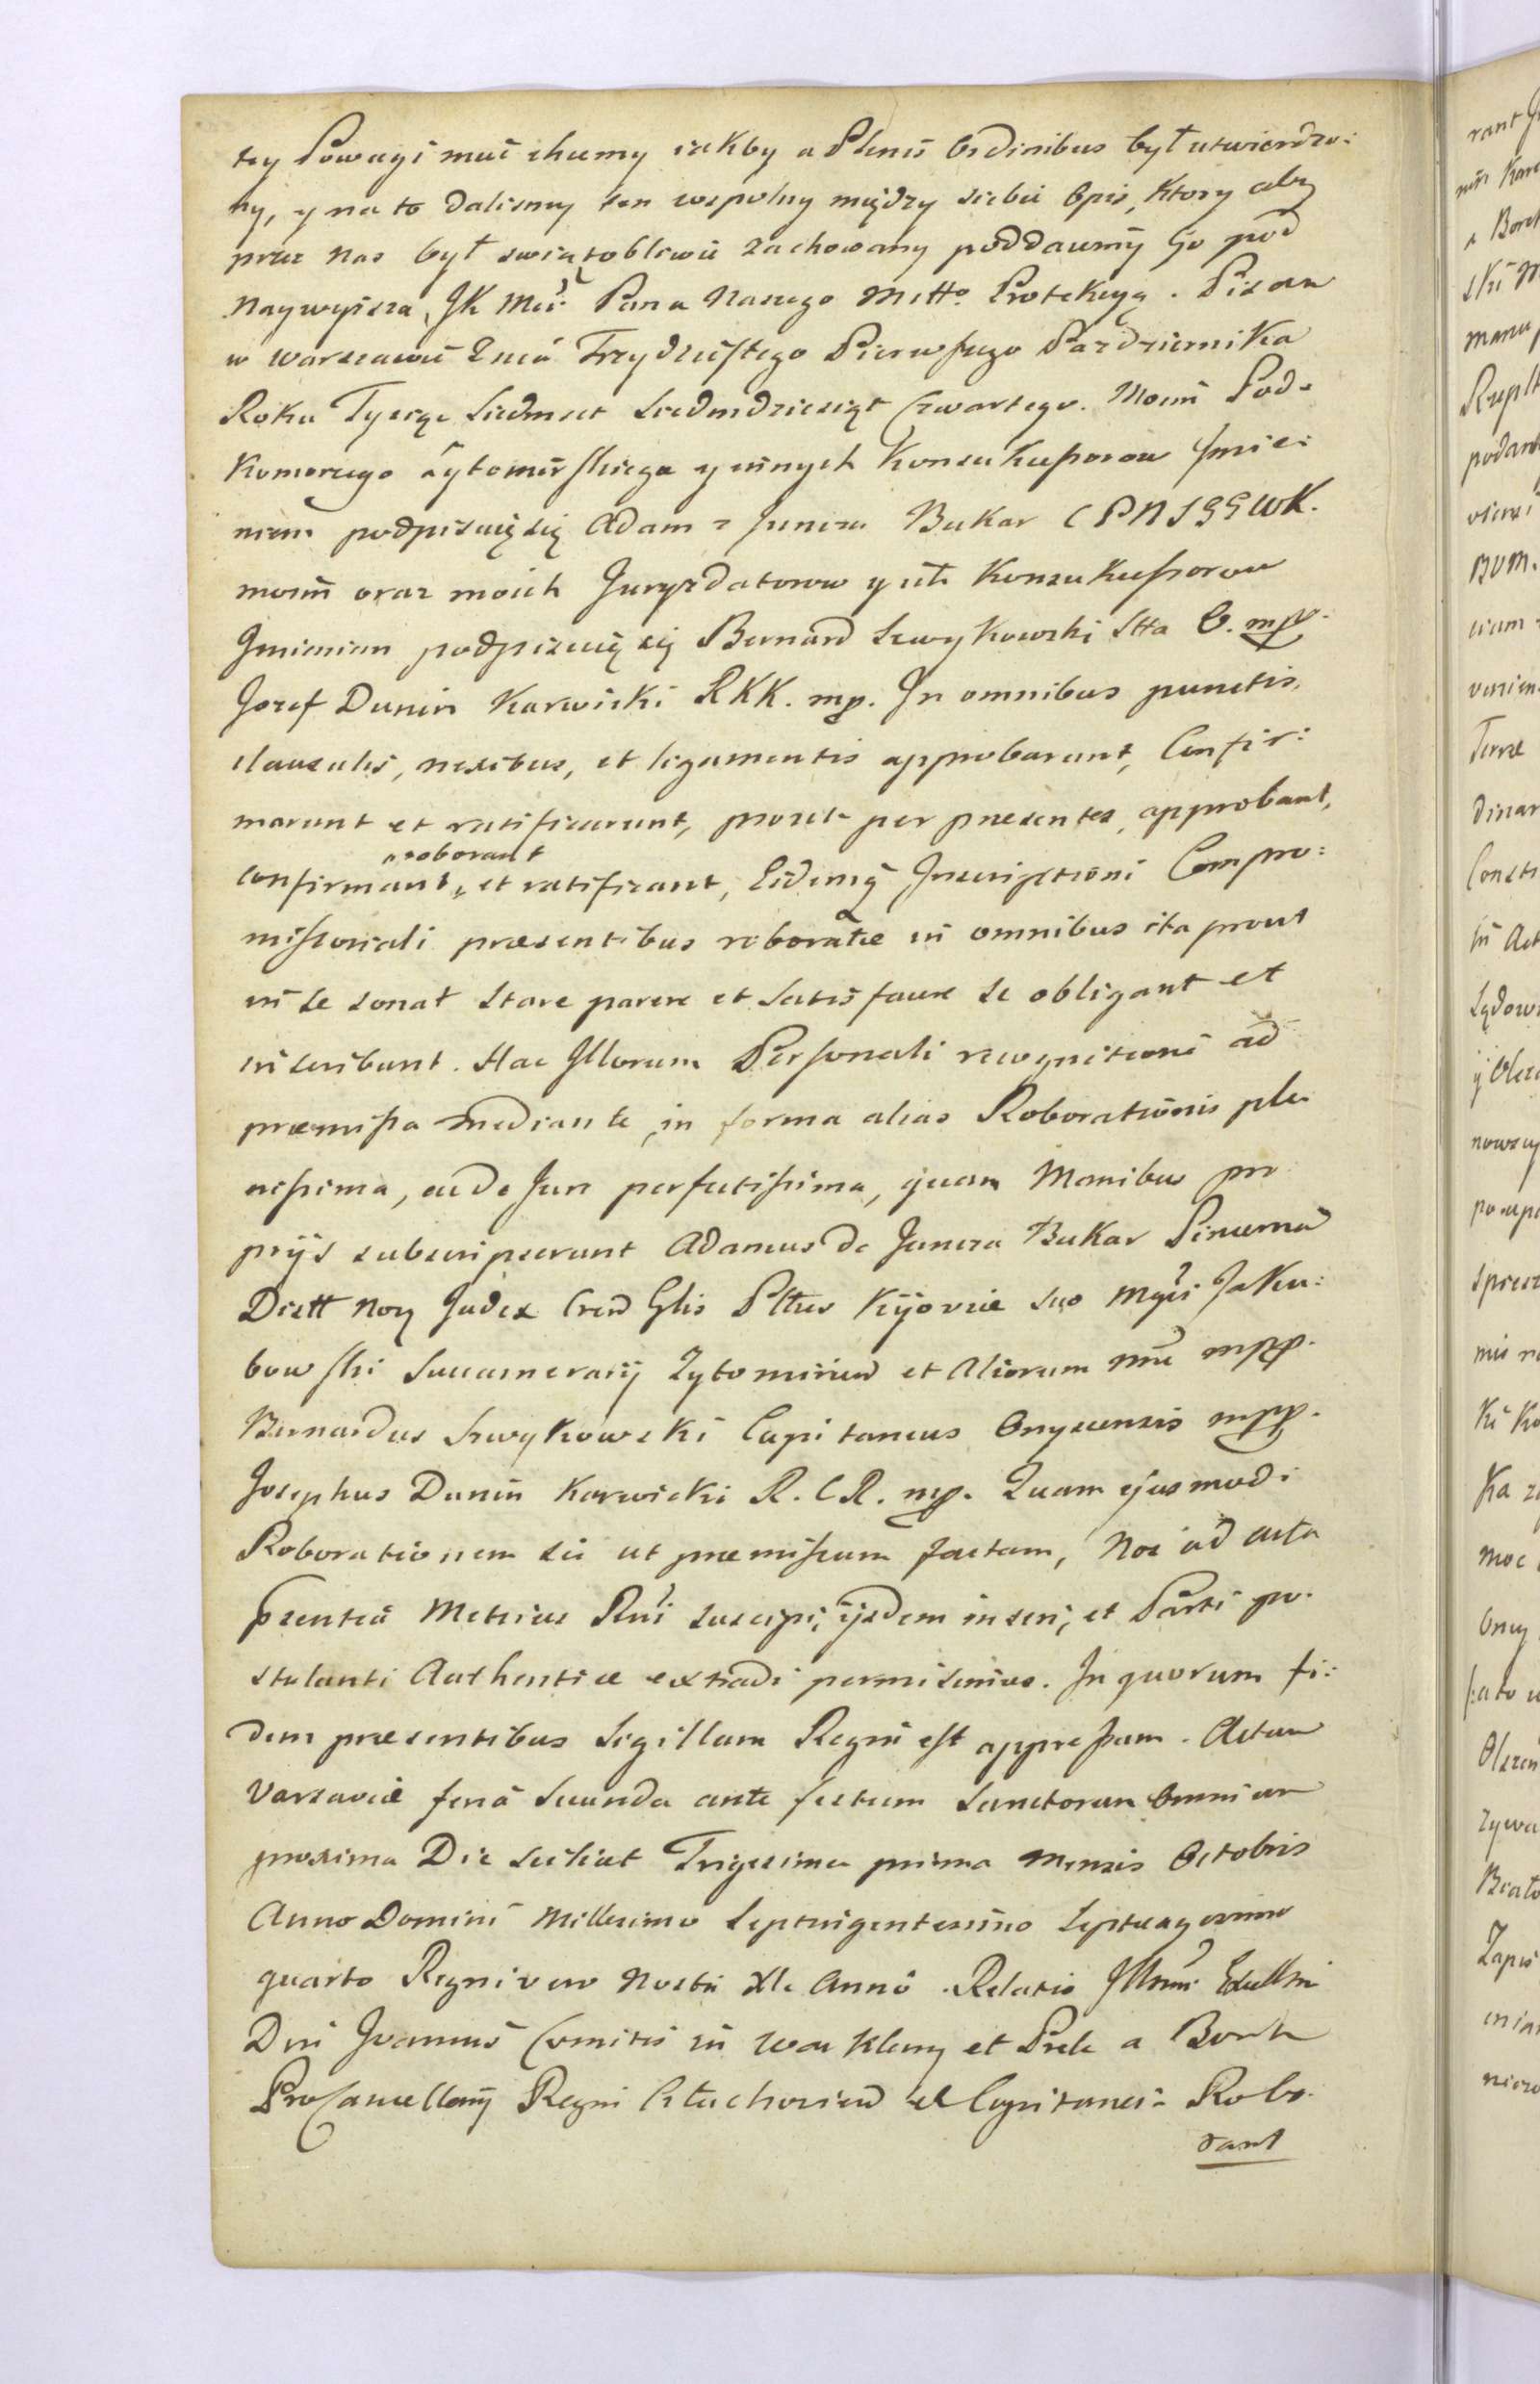 tey Powagi mieć chcemy iakby a Plenis Ordinibus był utwierdzo:
ny, y na to daliśmy ten wspolny między siebie Opis, ktory aby
przez nas był swiątobliwie zachowany poddaiemy go pod
Naywyższa JK Mći Pana Naszego Miłło Protekcyą. Pisan
w Warszawie Dnia Trzydziestego Pierwszego Pazdziernika
Roku Tysiąc Siedmset Siedmdziesiąt Czwartego. Moim Pod-
komorzego Zytomirskiego y innych Konsukcessorow Jmie:
niem podpisuię się Adam z Juncza Bukar C P N S G G W K.
moim oraz moich Jurysdatorow y ich Konsukcessorow
Jmieniem podpisuię się Bernard Szwykowski Stta O. mp.
Jozef Dunin Karwicki RKK. mp. In omnibus punctis,
clausulis, nexibus, et ligamentis approbarunt, Confir:
marunt et ratificarunt, prout per præsentes, approbant,
roborant
confirmant, et ratificant, Eidemq Inscriptioni Compro:
missoriali præsentibus roboratæ in omnibus ita prout
in se sonat stare parere et satisfacere se obligant et
inscribunt. Hac Illorum Personali recognitione ad
præmissa mediante, in forma alias Roborationis ple
nissima, ac de Jure perfectissima, quam Manibus pro
prijs subscripserunt Adamus de Juncza Bukar Pincerna
Distt Noy Judex Crend Glis Pttus Kijoviæ suo Mgci Jaku:
bowski Succamerarij Zytomirien et Aliorum nne mpp.
Bernardus Szwykowski Capitaneus Onyscensis mpp.
Josephus Dunin Karwicki R. C R. mp. Quam ejusmodi
Roborationem sic ut præmissum factam, Nos ad acta
præsentia Metrices Rni suscipi, ijsdem inseri, et Parti po:
stulanti Authentice extradi permisimus. In quorum fi:
dem præsentibus Sigillum Regni est appressum. Actum
Varsaviæ feria Secunda ante festum Sanctorum Omnium
proxima Die scilicet Trigesima prima Mensis Octobris
Anno Domini Millesimo Septuigentesimo Septuagesimo
quarto Regni vero Nostri XIo Anno. Relatio Illmi Excellmi
Dni Joannis Comitis in Warklany et Prele a Borch
ProCancellarij Regni Cluchorien et Capitanei. Robo-
rant